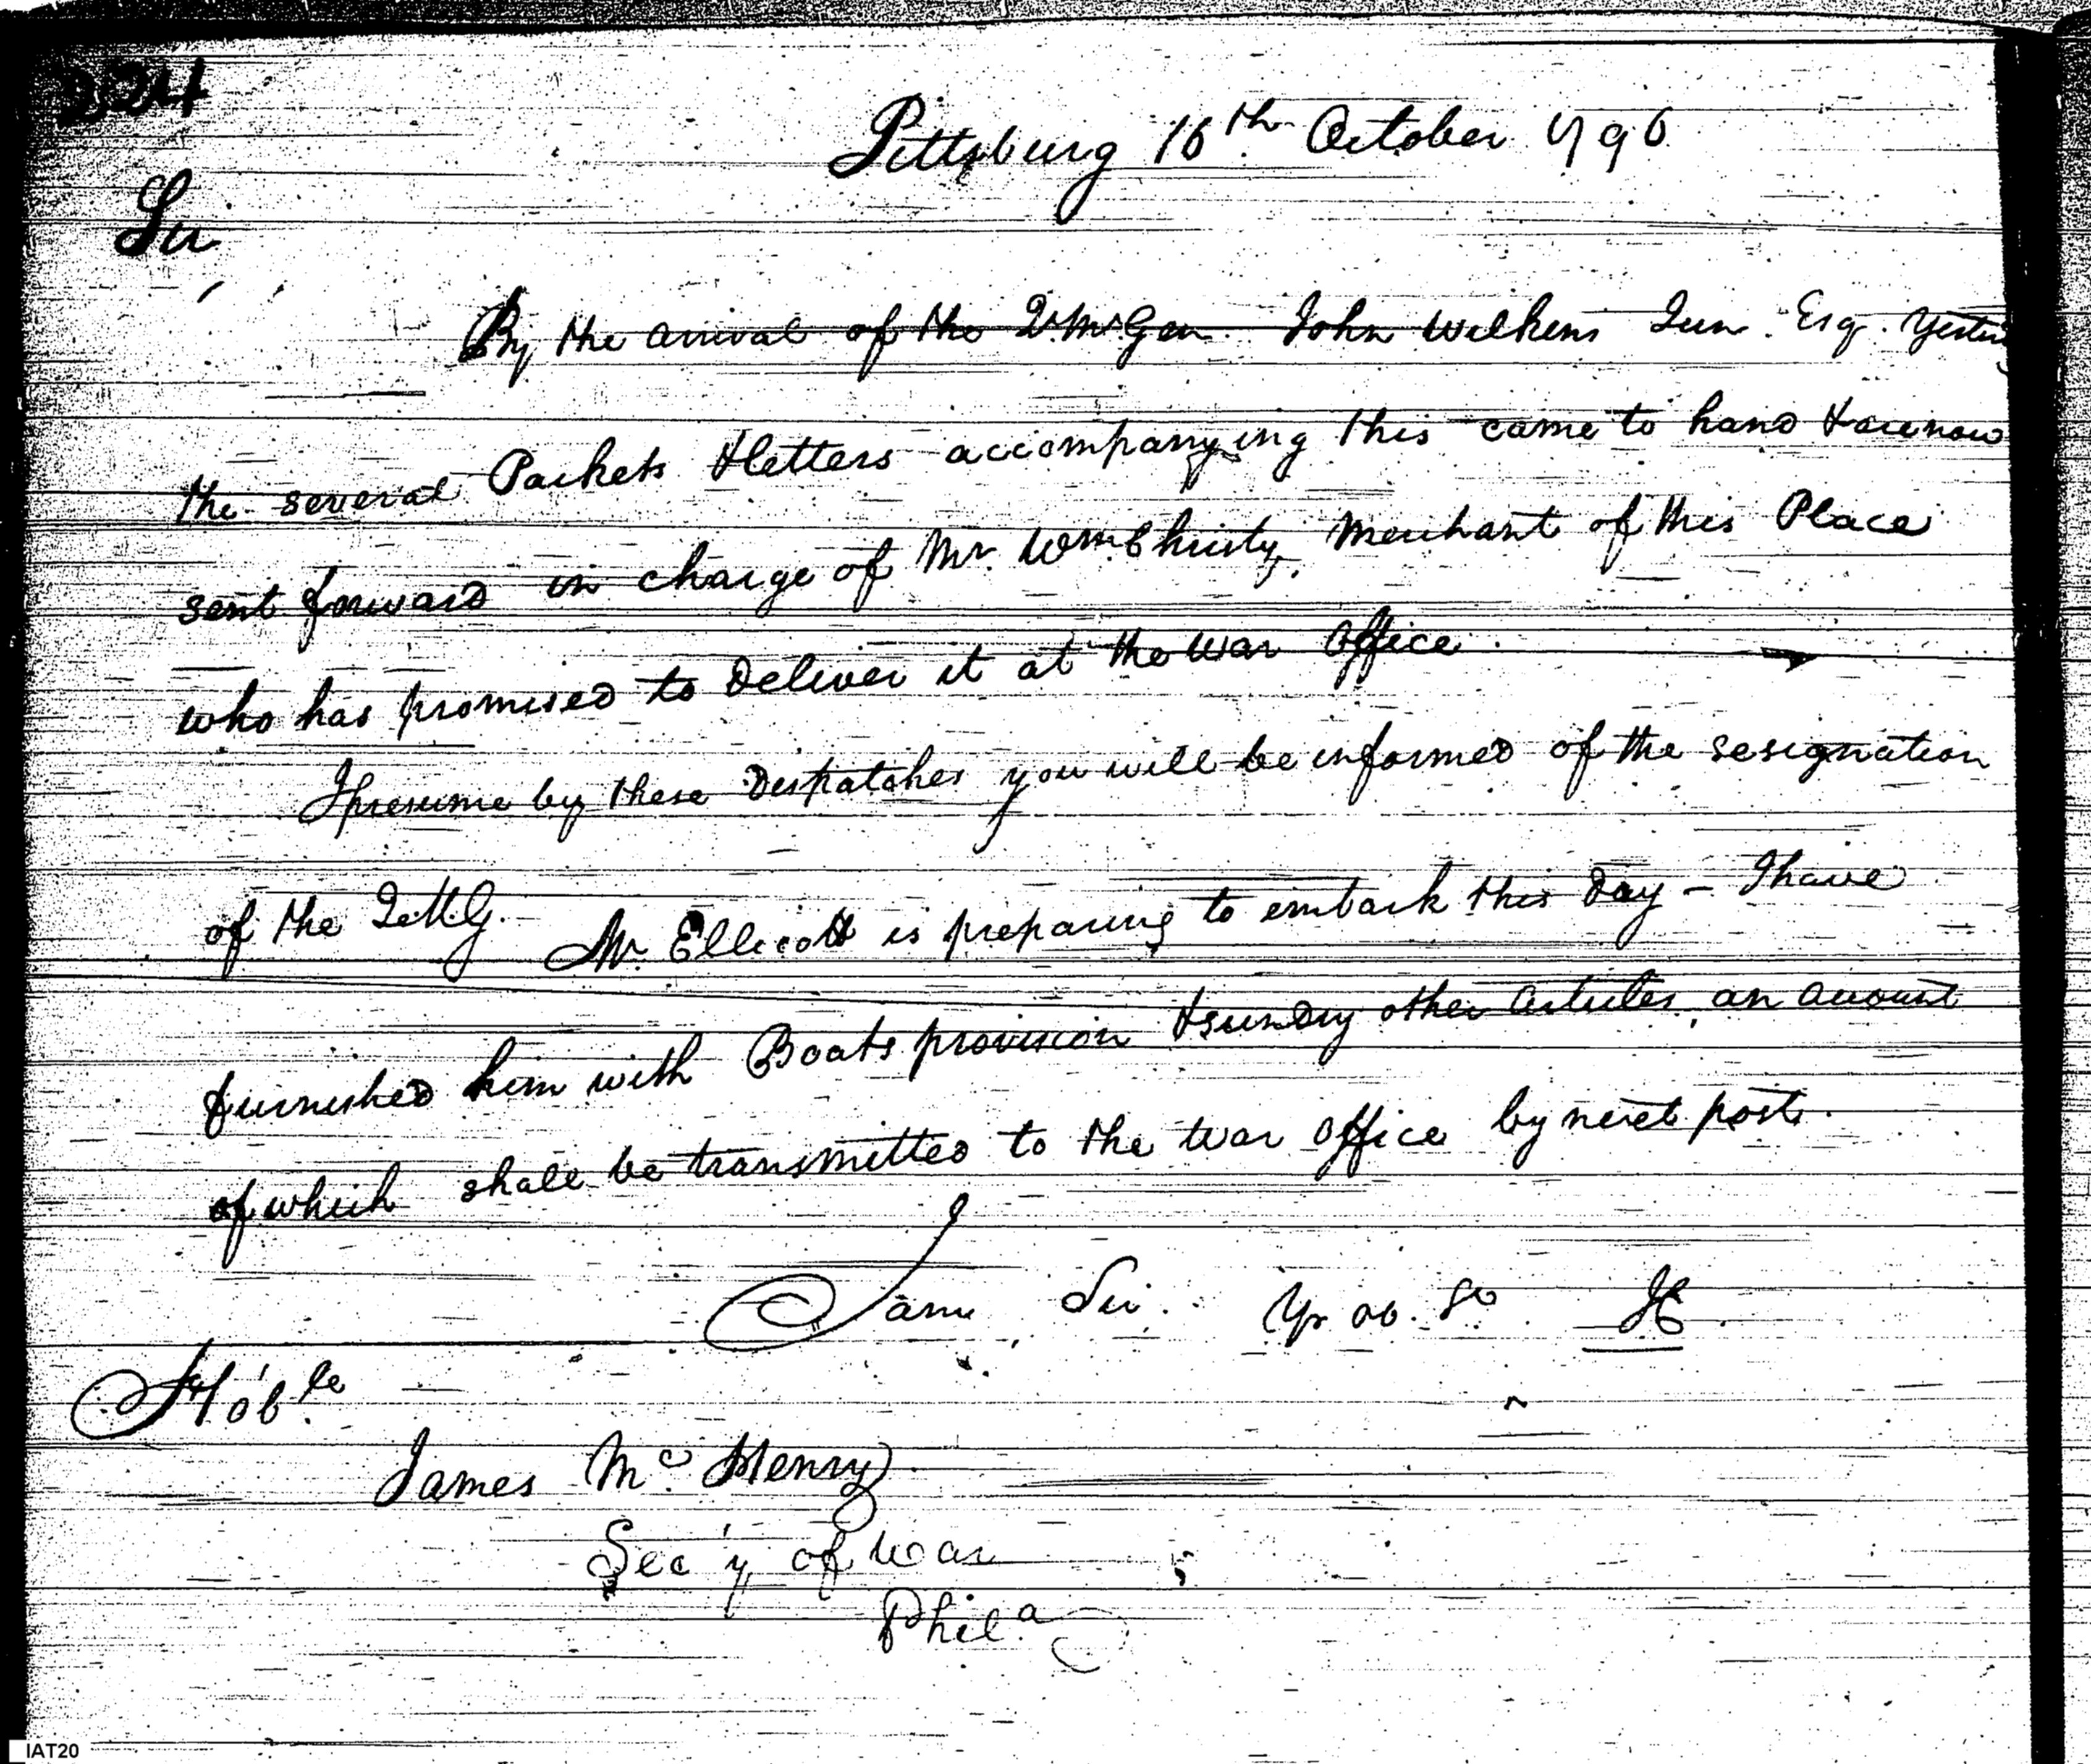 224
Pittsburg 16th October 1796
Sir
By the arrival of the Q.Mr.Gen. John Wilkins Jun. Esq. Yester
the several Packets & letters accompanying this came to hand & are now
sent forward in charge of Mr. Wm. Christy, Merchant of this Place
who has promised to deliver it at the War Office.
I presume by these Dispatches you will be informed of the resignation
of the Q.M.G. Mr. Ellicott is preparing to embark this Day - I have
furnished him with Boats provision & sundry other articles, an account
of which shall be transmitted to the War Office by next post.
I am Sir. Yr ob. Se
Hob'le
James Mc. Henry
Sec'y of War
Phila
IAT20